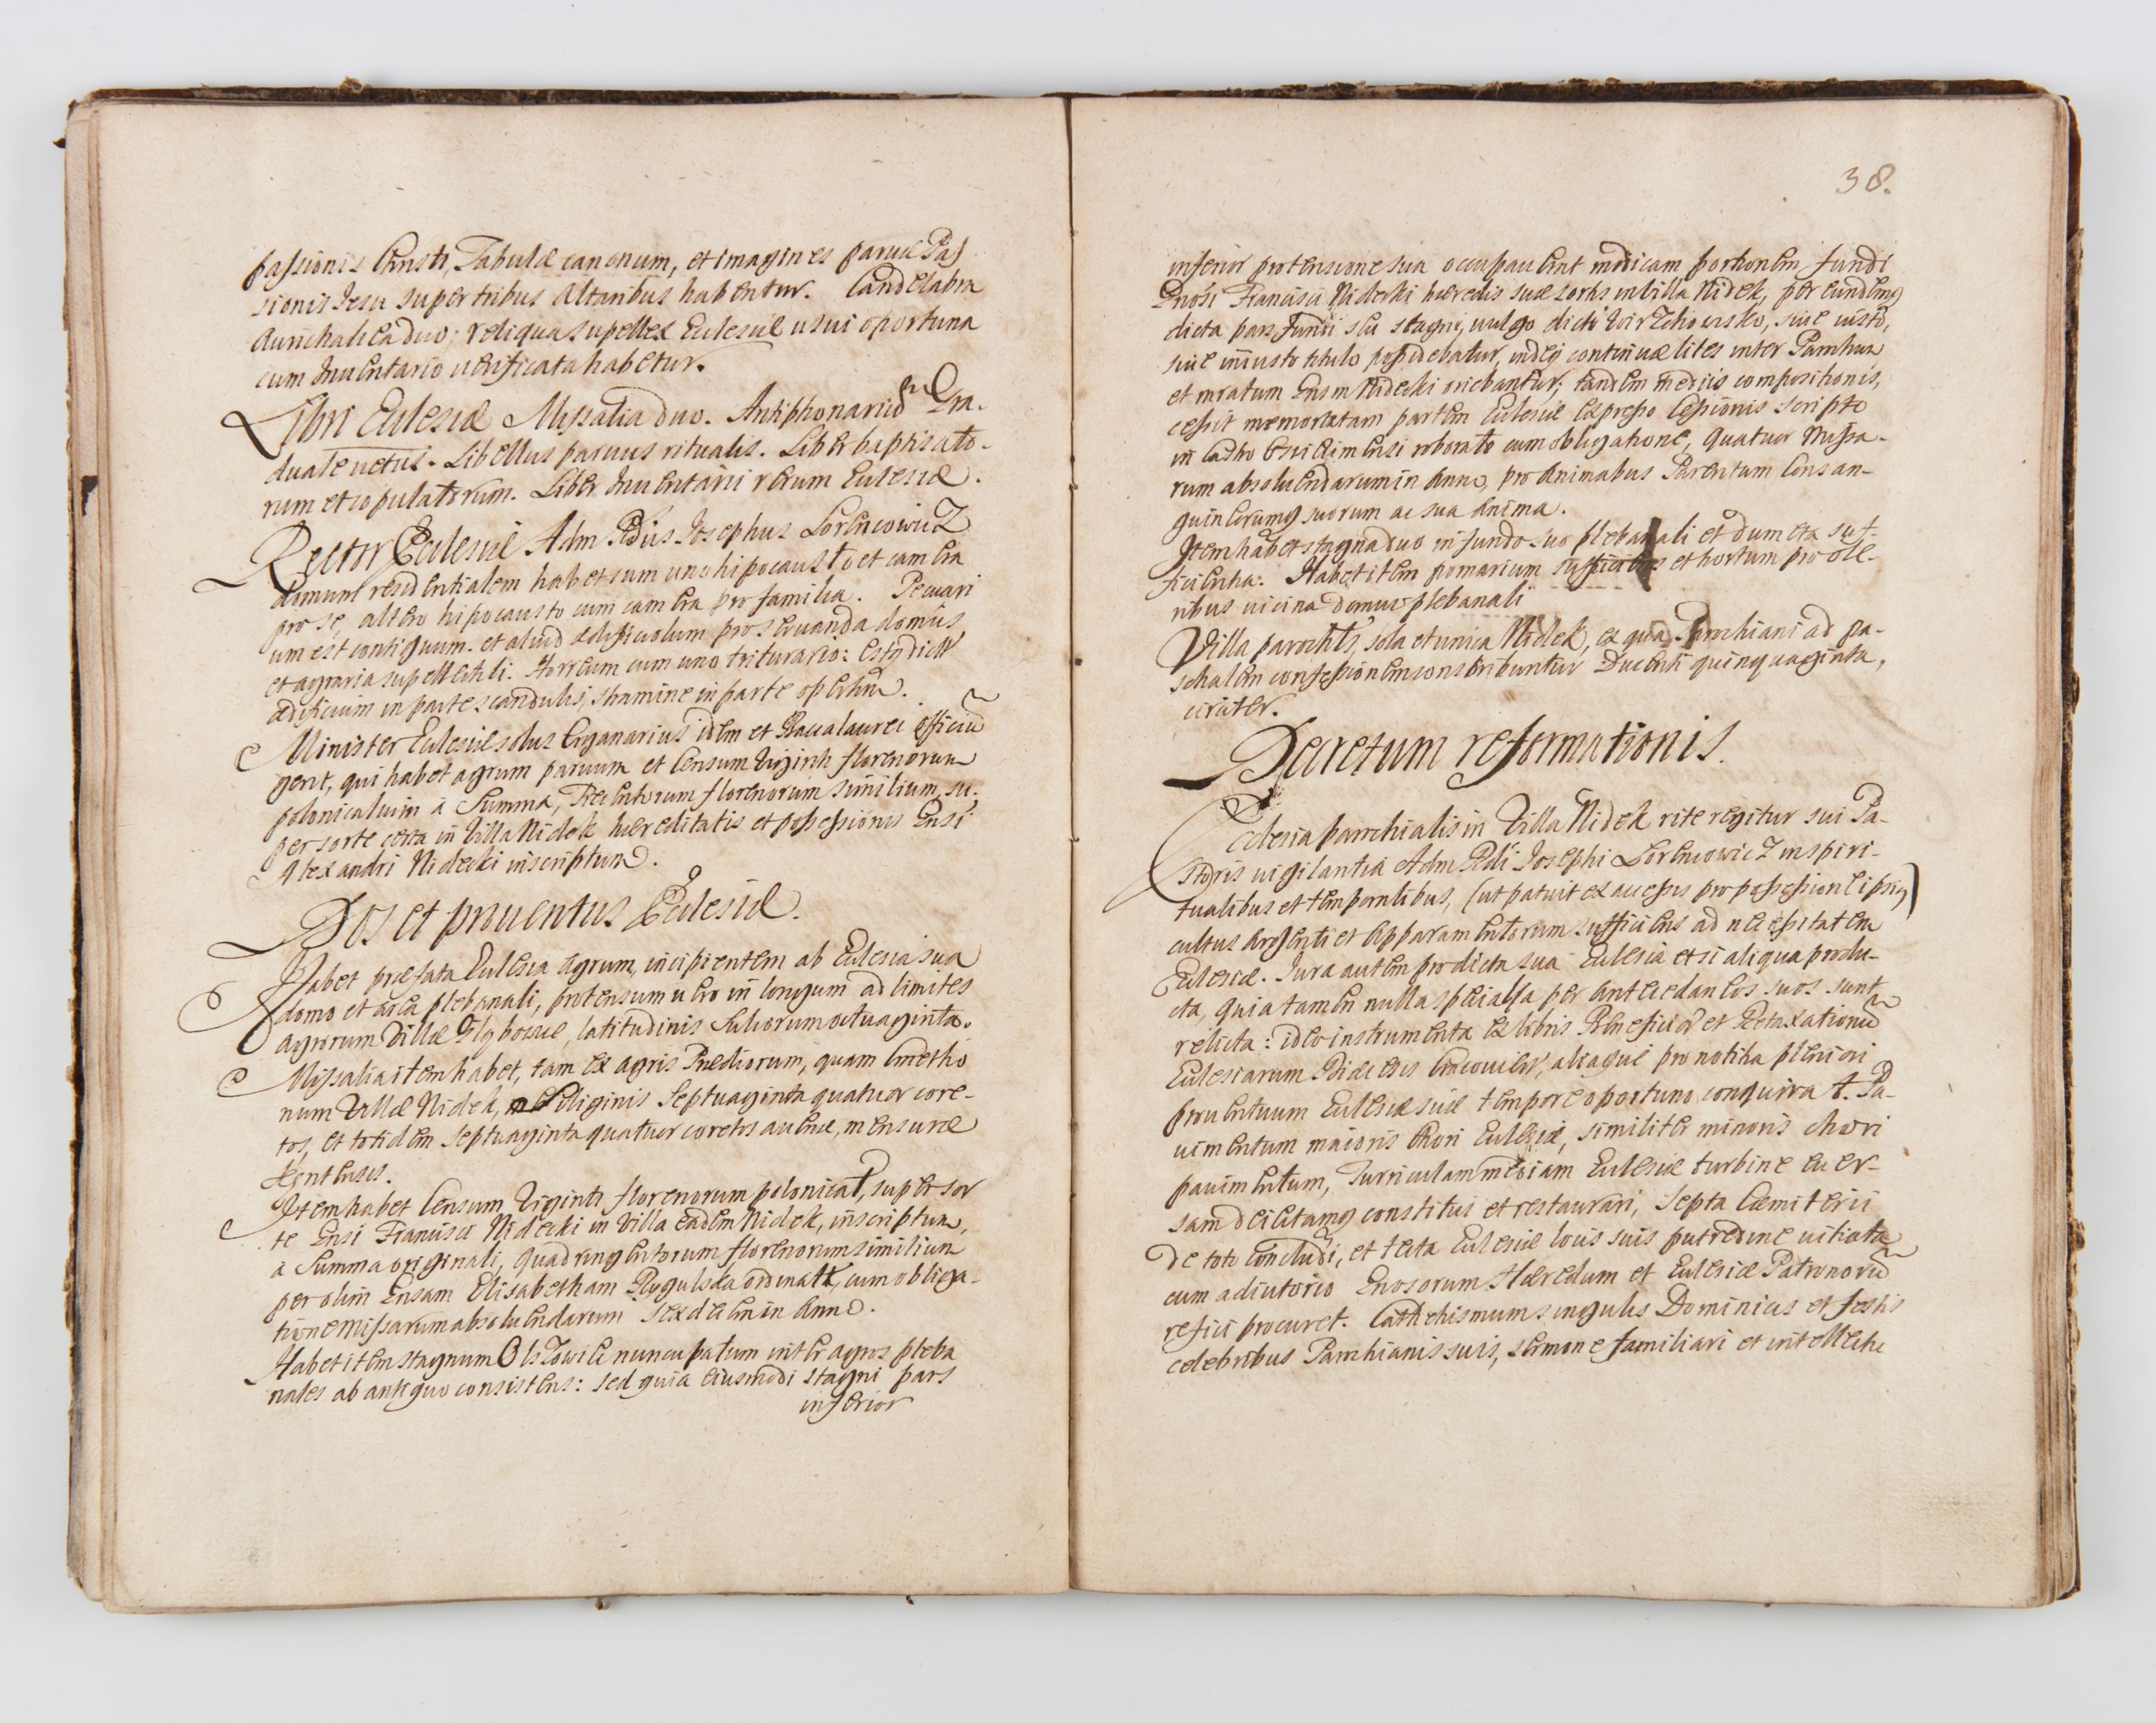 passionis Christi, Tabulæ canonum, et imagines parvæ Pas
sionis Jesu super tribus Altaribus habentur. Candelabra
Aurichalica duo; reliqua supellex Ecclesiæ usui oportuna
cum Inventario verificata habetur.
Libri Ecclesiæ Missalia duo. Antiphonariũ Gra-
duale vetus. Libellus parvus ritualis. Liber baptisato-
rum et copulatorum. Liber Inventarii rerum Ecclesiæ.
Rector Ecclesiæ Adm Rdus Josephus Lorencowicz
domum residentialem habet cum uno hipocausto et camera
pro se, altero hipocausto cum camera pro familia. Pecuari
um est contiguum. et aliud ædificiolum pro servanda domus
et agraria supellectili. Horreum cum uno triturario:
ædificium in parte scandulis, stramine in parte opertum.
Minister Ecclesiæ solus Organarius idem et Baccalaurei officiũ
gerit, qui habet agrum parvum et Censum Viginti florenorum
polonicalium à Summa, Trecentorum florenorum similium, su-
per sorte certa in Villa Nidek hæreditatis et possessionis Gnsi
Alexandri Nidecki inscriptum.
Dos et proventus Ecclesiæ.
Habet præfata Ecclesia agrum, incipientem ab Ecclesia sua
domo et area plebanali, protensum vero in longum ad limites
agrorum Villæ Głybowice, latitudinis Sulcorum octuaginta.
Missalia item habet, tam ex agris Prædiorum, quam Cmetho
num Villæ Nidek, Siliginis Septuaginta quatuor core-
tos, et totidem septuaginta quatuor coretos avenæ, mensuræ
Kentensis.
Item habet Censum Viginti florenorum polonical, super sor
te Gnsi Francisci Nidecki in Villa eadem Nidek, inscriptum,
a Summa originali, quadringentorum florenorum similium
per olim Gnsam Elisabetham Rygulska ordinata, cum obliga-
tione missarum absolvendarum sexdecem in Anno.
Habet item stagnum Olszowice nuncupatum inter agros pleba
nales ab antiquo consistens: sed quia eiusmodi stagni pars
inferior
38.
inferior protensione sua occupaverit modicam portionem fundi
Gnosi Francisci Nidecki hæredis suæ sortis in Villa Nidek, per eundemq
dicta pars fundi seu stagni, vulgo dicti Wirzchowisko, sive iusto,
sive iniusto titulo possidebatur, indeq continuæ lites inter Parochum
et Gnsm Nidecki oriebantur; tandem mediis compositionis,
cessit memoratam partem Ecclesiæ expresso Cessionis scripto
in Castro Osviecimensi roborato cum obligatione, quatuor Missa-
rum absolvendarum in Anno, pro Animabus Parentum Consan-
guineorumq suorum ac sua Anima.
Item habet stagna duo in fundo suo plebanali et dumeta suf-
ficientia: Habet item pomarium et hortum pro ole-
ribus vicina domui plebanali
Villa parochis, sola et unica Nidek, ex qua Parochiani ad pa-
schalem confessionem conscribuntur Ducenti quinquaginta,
circiter.
Decretum reformationis.
Ecclesia parochialis in Villa Nidek rite regitur sui Pa-
storis vigilantia Adm Rdi Josephi Lorencowicz in spiri-
tualibus et temporalibus, (ut patuit ex accessis pro possessione ipsiq)
cultus Argenti et Apparamentorum sufficiens ad necessitatem
Ecclesiæ. Jura autem pro dicta sua Ecclesia etsi aliqua produ-
cta, quia tamen nulla specialia per Antecedaneos suos sunt
relicta: ideo instrumenta ex libris Beneficior et Retaxationũ
Ecclesiarum Diæcesis Cracoviens, aliaque pro notitia pleniori
proventuum Ecclesiæ suæ tempore oportuno conquirat. Pa-
vimentum maioris Chori Ecclesiæ, similiter minoris chori
pavimentum, Turriculam mediam Ecclesiæ turbine ever-
sam deiectamq constitui et restaurari, Septa Cæmiterii
de toto concludi, et tecta Ecclesiæ locis suis putredine vitiata
cum adiutorio Gnosorum Hæredum et Ecclesiæ Patronorũ
refici procuret. Cathehismum singulis Dominicis et festis
celebribus Parochianis suis, sermone familiari et intellectu